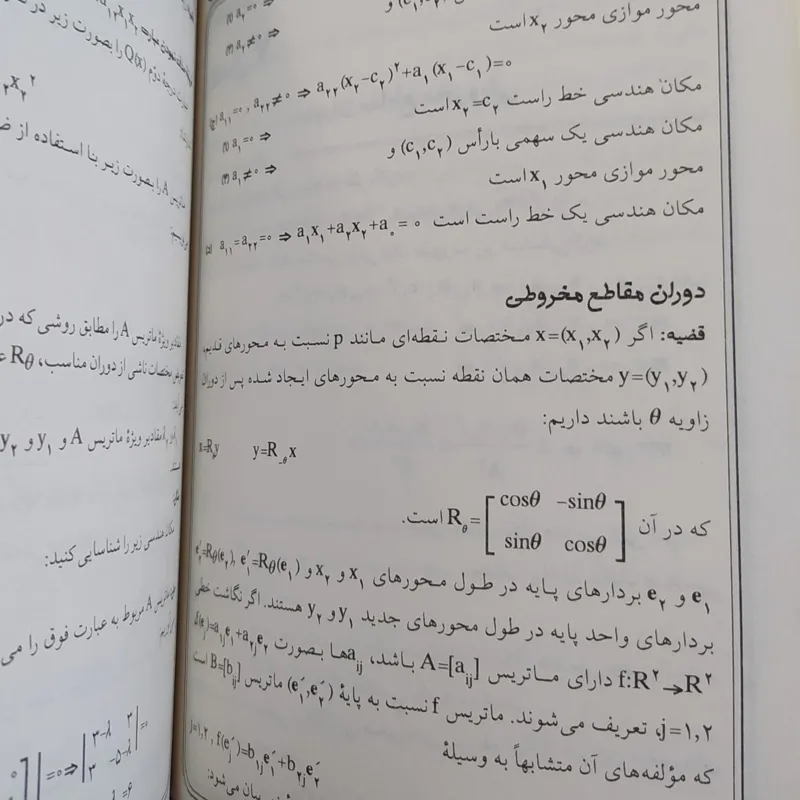 (۱) a₂=۰ ⇒
محور موازی محور x₂ است
(۲) a₂≠۰ ⇒
ج) a₁₁=۰ , a₂₂≠۰ ⇒ a₂₂(x₂−c₂)²+a₁(x₁−c₁)=۰
مکان هندسی خط راست x₂=c₂ است
(۱) a₁=۰ ⇒
مکان هندسی یک سهمی بارأس (c₁,c₂) و
محور موازی محور x₁ است
(۲) a₁≠۰ ⇒
مکان هندسی یک خط راست است a₁₁=a₂₂=۰ ⇒ a₁x₁+a₂x₂+a₀=۰ (د
دوران مقاطع مخروطی
قضیه: اگر x=(x₁,x₂) مختصات نقطه‌ای مانند p نسبت به محورهای قدیم،
y=(y₁,y₂) مختصات همان نقطه نسبت به محورهای ایجاد شده پس از دوران
زاویه θ باشند داریم:
x=Rθy y=R₋θx
که در آن Rθ=[cosθ −sinθ
sinθ cosθ] است.
e₁ و e₂ بردارهای پایه در طول محورهای x₁ و x₂ و e′₁=Rθ(e₁), e′₂=Rθ(e₂)
بردارهای واحد پایه در طول محورهای جدید y₁ و y₂ هستند. اگر نگاشت خطی
f:R²→R² دارای ماتریس A=[aᵢⱼ] باشد، aᵢⱼها بصورت f(eⱼ)=a₁ⱼe₁+a₂ⱼe₂
j=۱,۲، تعریف می‌شوند. ماتریس f نسبت به پایهٔ (e′₁,e′₂) ماتریس B=[bᵢⱼ] است
که مؤلفه‌های آن متشابهاً به وسیلهٔ j=۱,۲ , f(e′ⱼ)=b₁ⱼe′₁+b₂ⱼe′₂
بیان می‌شود:
را بصورت زیر در
₂x₂²
ماتریس A را بصورت زیر با استفاده از
مقادیر ویژهٔ ماتریس A را مطابق روشی که در
مختصات ناشی از دوران مناسب، Rθ
مقادیر ویژهٔ ماتریس A و y₁ و y₂
مکان هندسی زیر را شناسایی کنید:
ماتریس A مربوط به عبارت فوق را می
=۰⇒ |۳−λ ۳
۳ −۵−λ|=۰